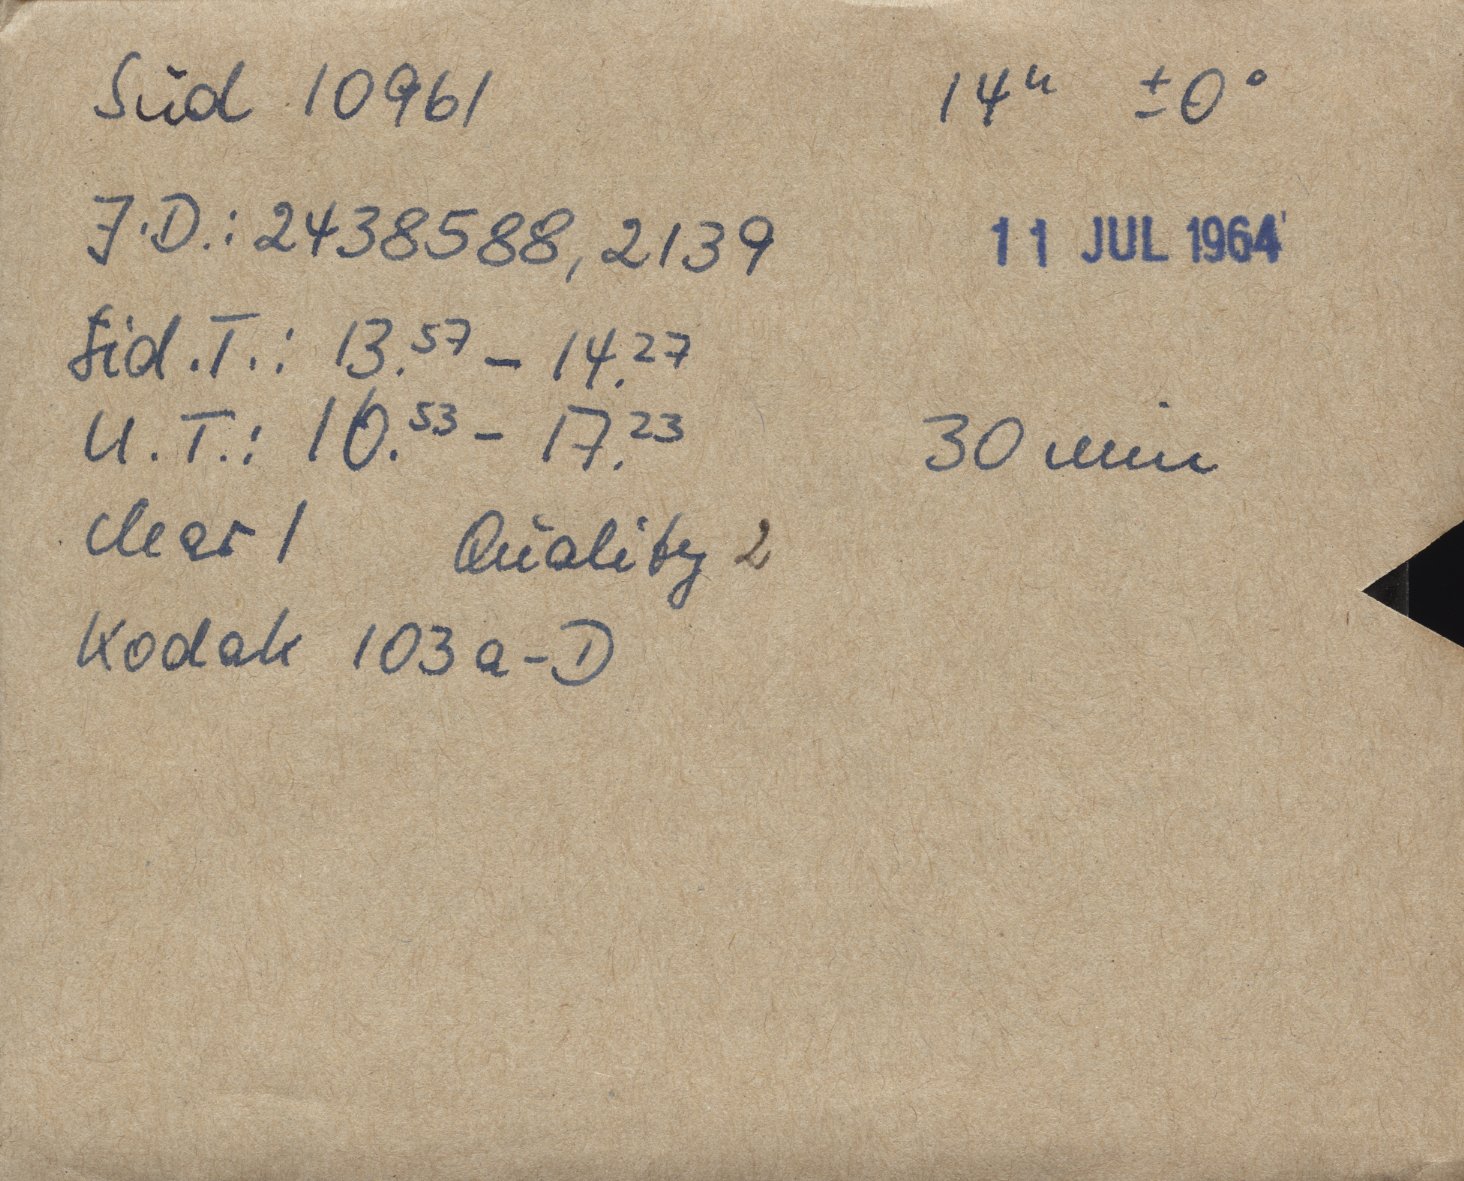 Süd 10961 14ʰ ±0°
J.D.: 2438588,2139 11 JUL 1964
Sid.T.: 13.⁵⁷ – 14.²⁷
U.T.: 16.⁵³ – 17.²³ 30 min
clear 1 Quality 2
Kodak 103a-D